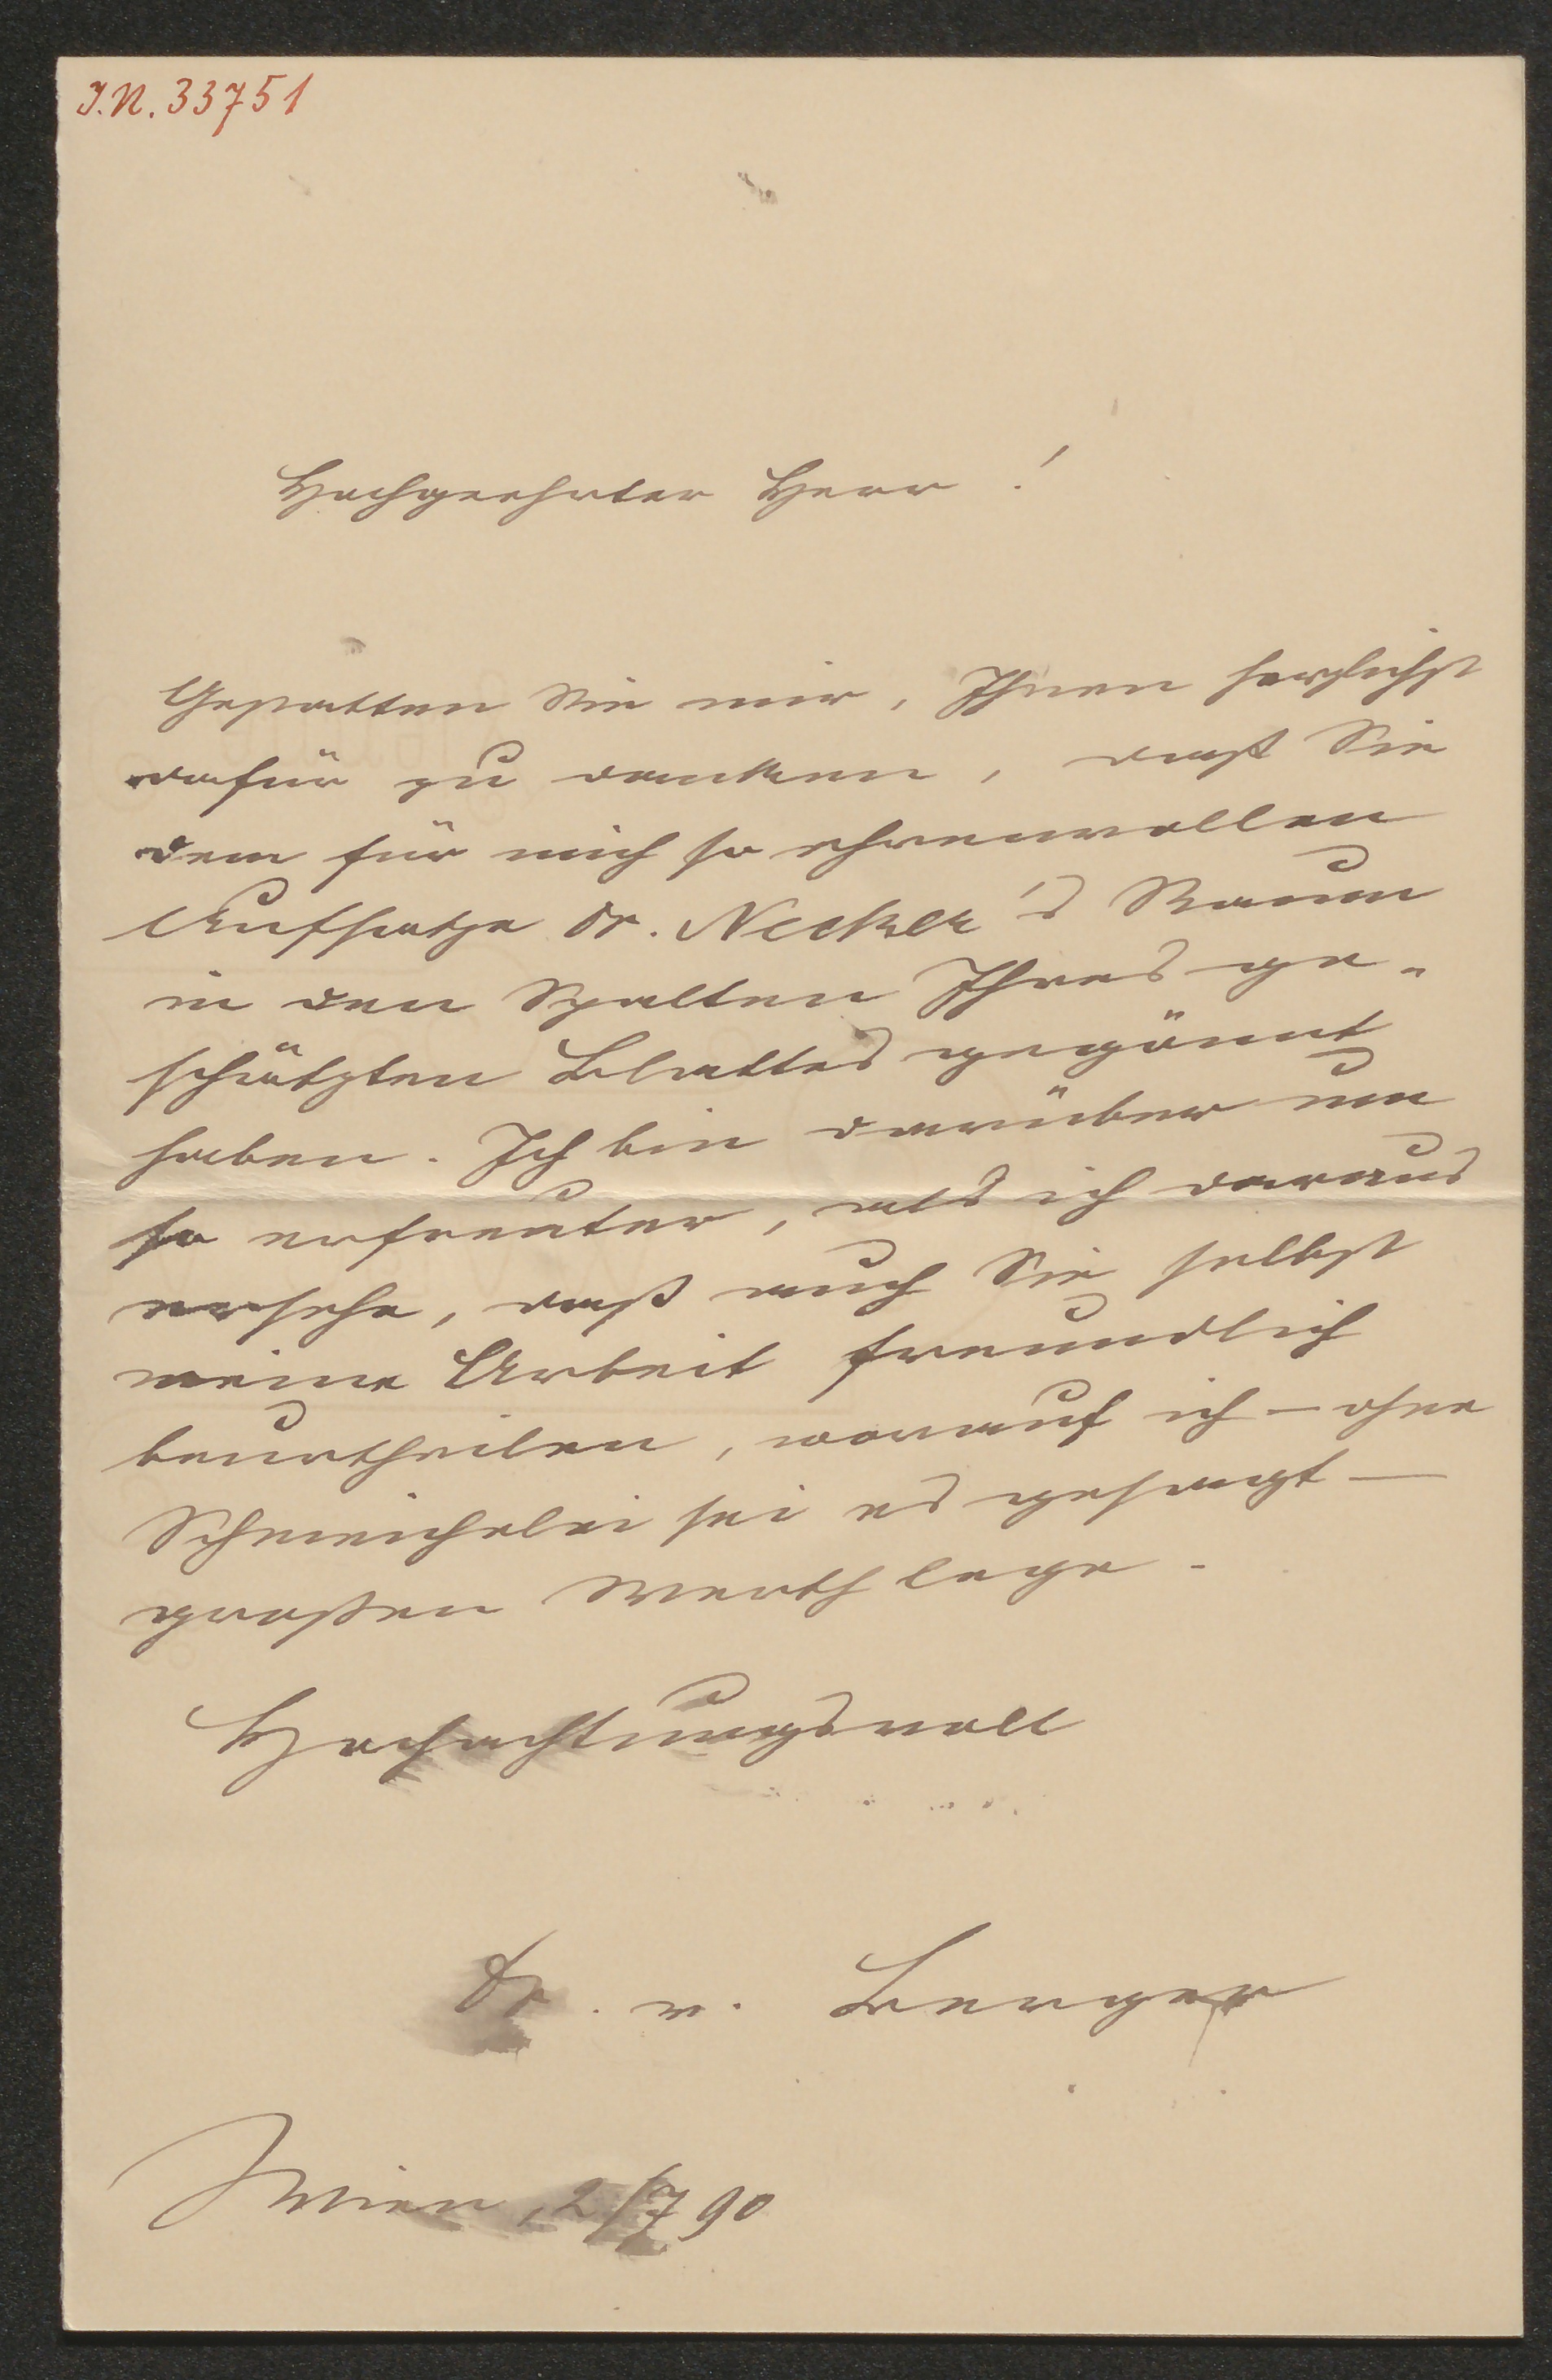 I.N. 33751
Hochgeehrter Herr!
Gestatten Sie mir, Ihnen herzlichst
dafür zu danken, daß Sie
dem für mich so ehrenvollen
Aufsatze Dr. Necker's Raum
in den Spalten Ihres ge-
schätzten Blattes gegönnt
haben. Ich bin darüber um
so erfreuter, als ich daraus
ersehe, daß auch Sie selbst
meine Arbeit freundlich
beurtheilen, worauf ich – ohne
Schmeichelei sei es gesagt –
großen Werth lege.
Hochachtungsvoll
Dr. v. Berger
Wien, 2/7 90